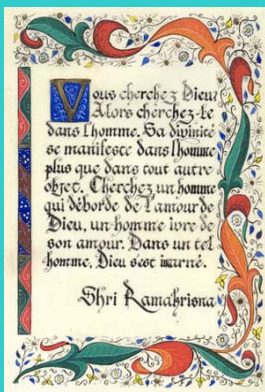 Vous cherchez Dieu?
Alors cherchez-le
dans l'homme. Sa divinité
se manifeste dans l'homme
plus que dans tout autre
objet. Cherchez un homme
qui déborde de l'amour de
Dieu, un homme ivre de
son amour. Dans un tel
homme, Dieu s'est incarné.
Shri Ramakrisna